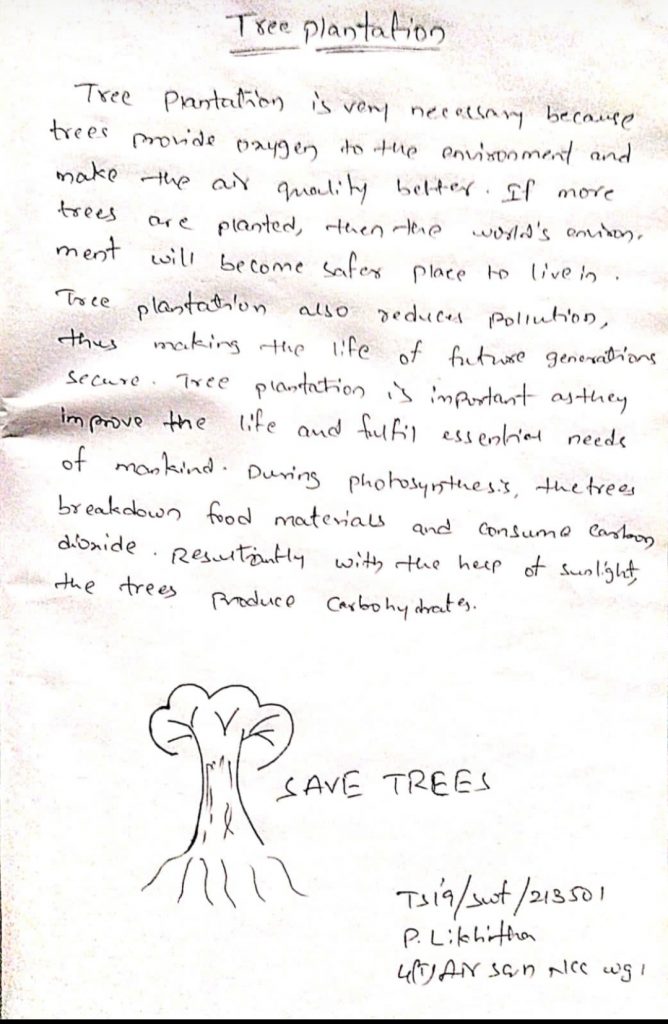 Tree plantation
Tree Plantation is very necessary because
trees provide oxygen to the environment and
make the air quality better. If more
trees are planted, then the world's environ.
ment will become safer place to live in.
Tree plantation also reduces pollution,
thus making the life of future generations
secure. Tree plantation is important as they
improve the life and fulfil essential needs
of mankind. During photosynthesis, the trees
breakdown food materials and consume carbon
dioxide. Resultiantly with the help of sunlight,
the trees Produce carbohydrates.
SAVE TREES
TS19/swt/213501
P. Likhitha
4(T) AIR sqn NCC wg 1